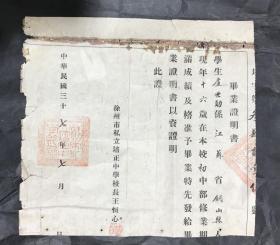 畢業證明書
學生盧世勛係江蘇省銅山縣人
現年十六歲在本校初中部修業期
滿成績及格准予畢業特先發給畢
業證明書以資證明
此證
徐州市私立矯正中學校長王恒心
中華民國三十七年七月 日